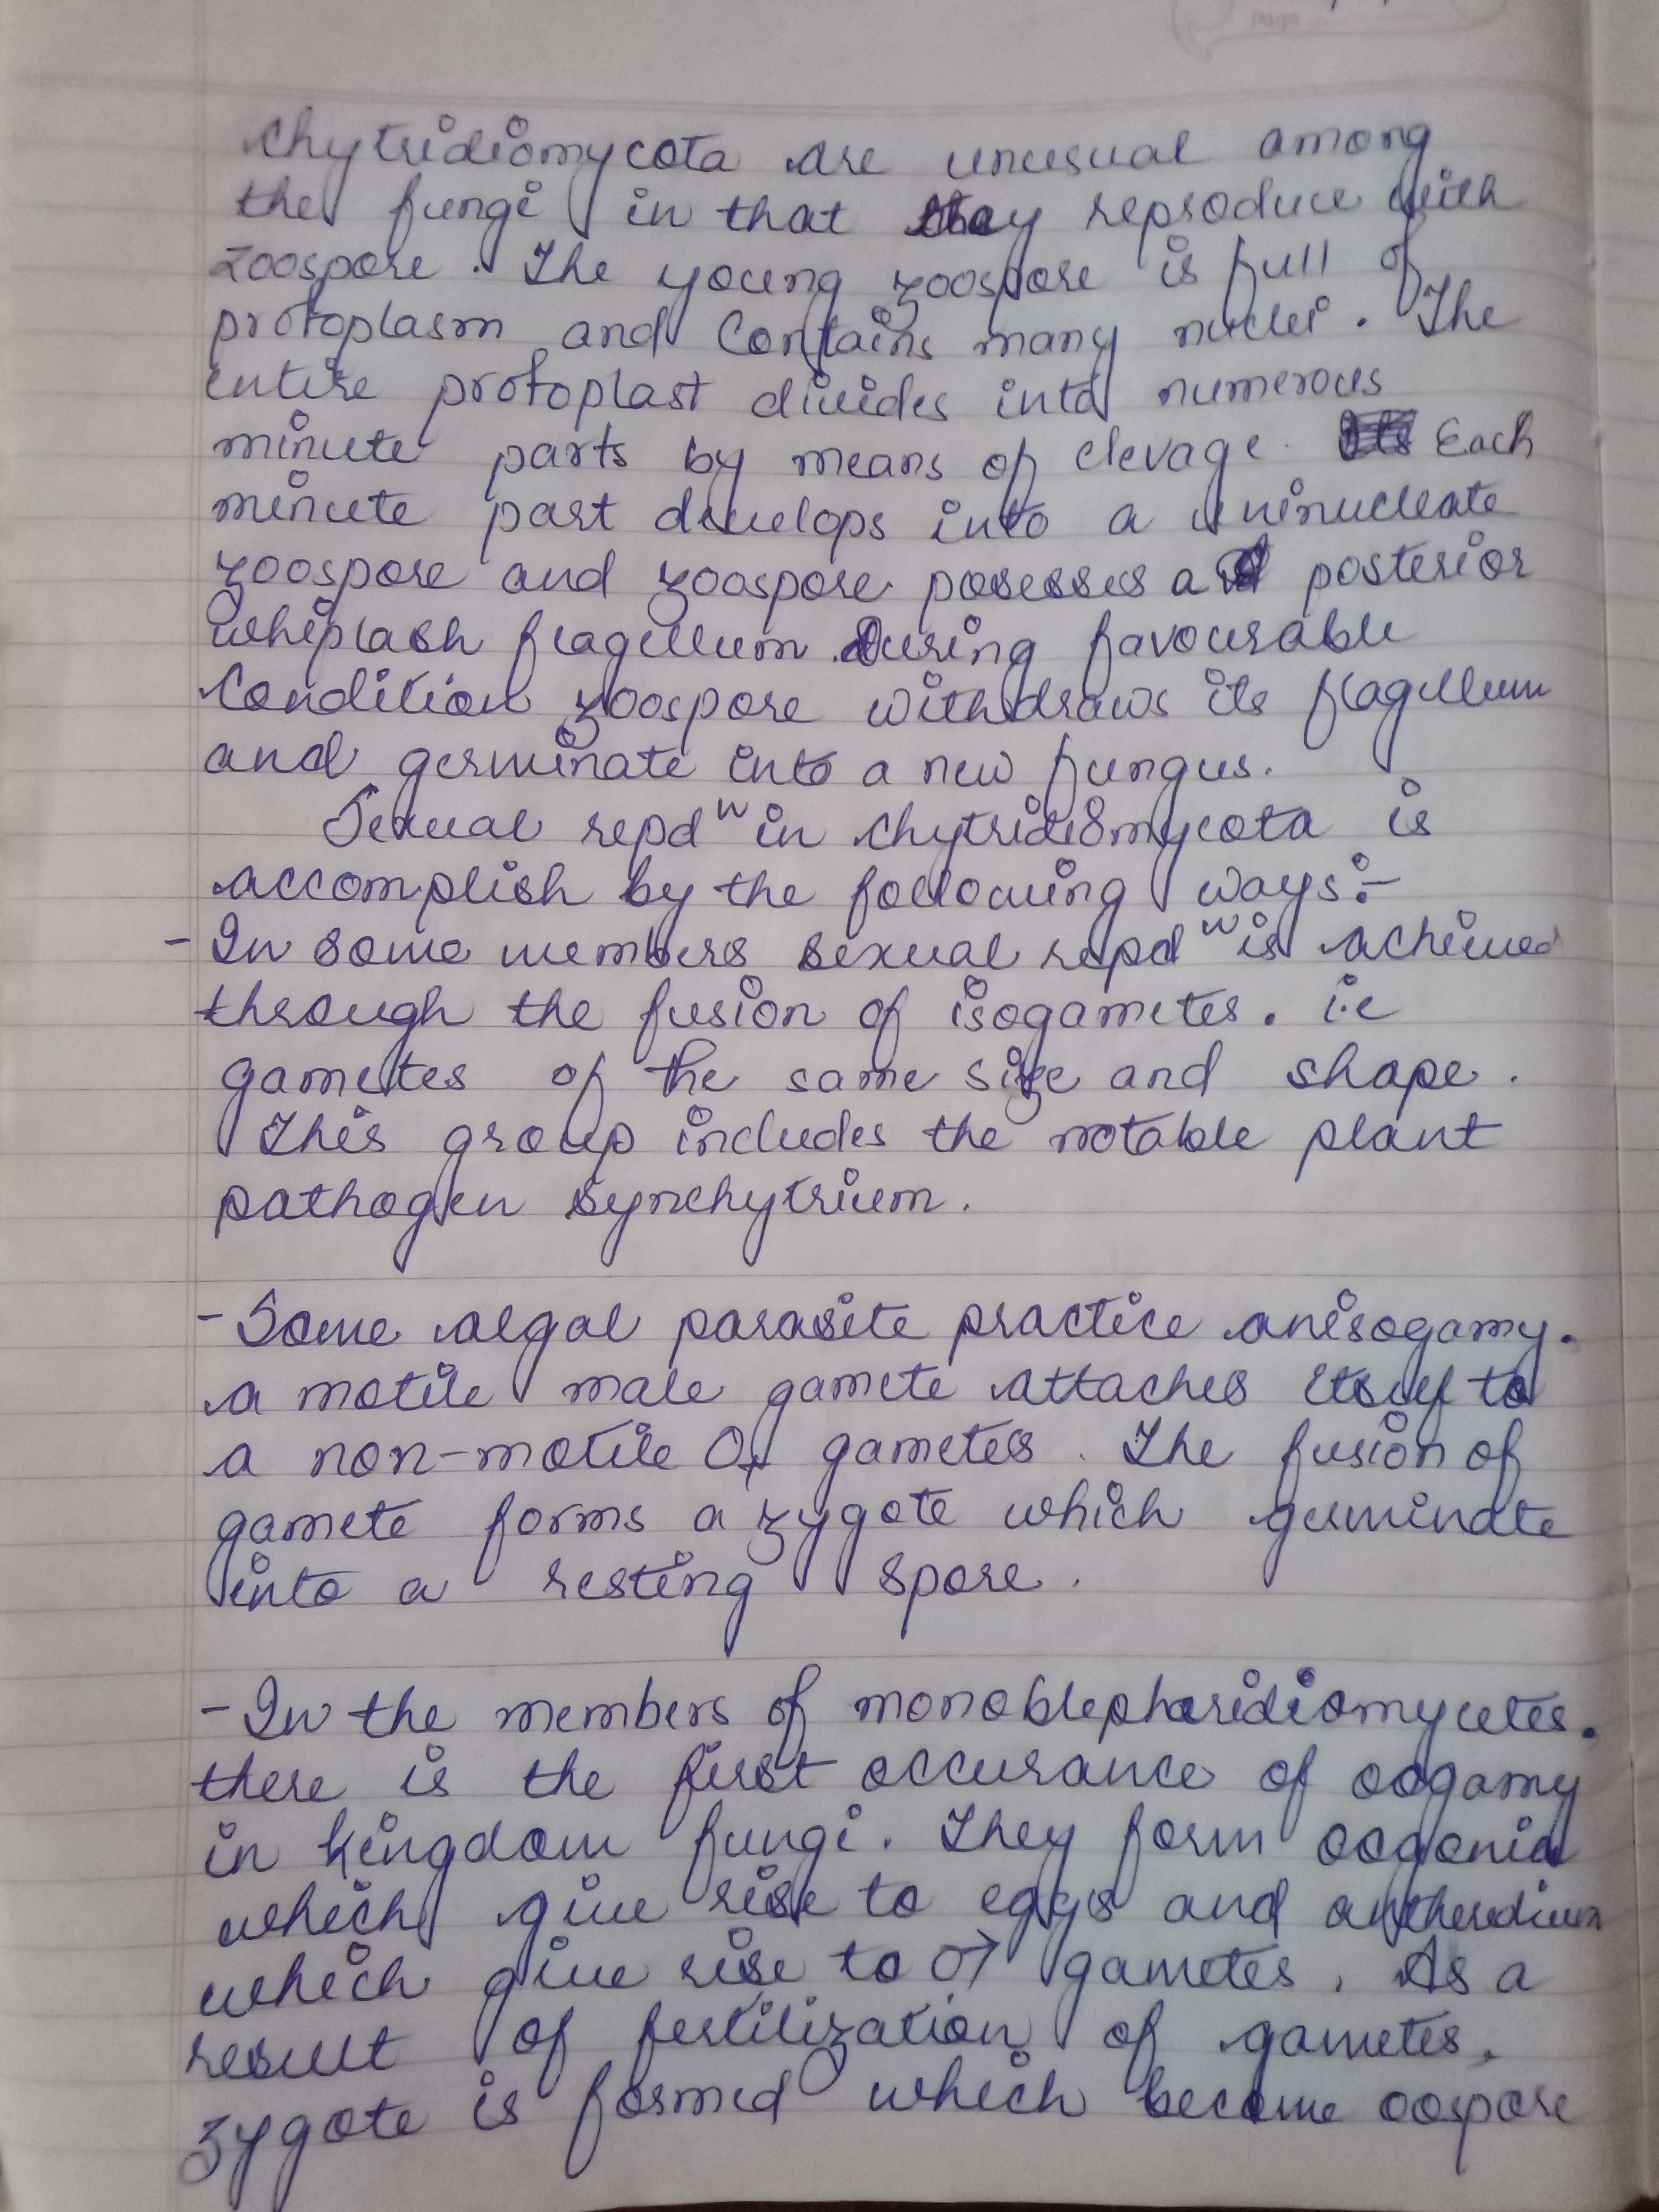 Page
Chytridiomycota are unusual among
the fungi in that they reproduce with
zoospore. The young zoospore is full of
protoplasm and contains many nuclei. The
entire protoplast divides into numerous
minute parts by means of clevage. Each
minute part develops into a uninucleate
zoospore and zoospore posesses a posterior
whiplash flagellum. During favourable
Condition zoospore withdraws its flagellum
and germinate into a new fungus.
Sexual repdⁿ in chytridiomycota is
accomplish by the following ways:-
- In some members sexual repdⁿ is achieved
through the fusion of isogametes. i.e
gametes of the same size and shape.
This group includes the notable plant
pathogen synchytrium.
- Some algal parasite practice anisogamy.
a motile male gamete attaches itself to
a non-motile ♀ gametes. The fusion of
gamete forms a zygote which germinate
into a resting spore.
- In the members of monoblepharidiomycetes.
there is the first occurance of oogamy
in kingdom fungi. They form oogonia
which give rise to eggs and antheredium
which give rise to ♂ gametes. As a
result of fertilization of gametes,
zygote is formed which become oospore